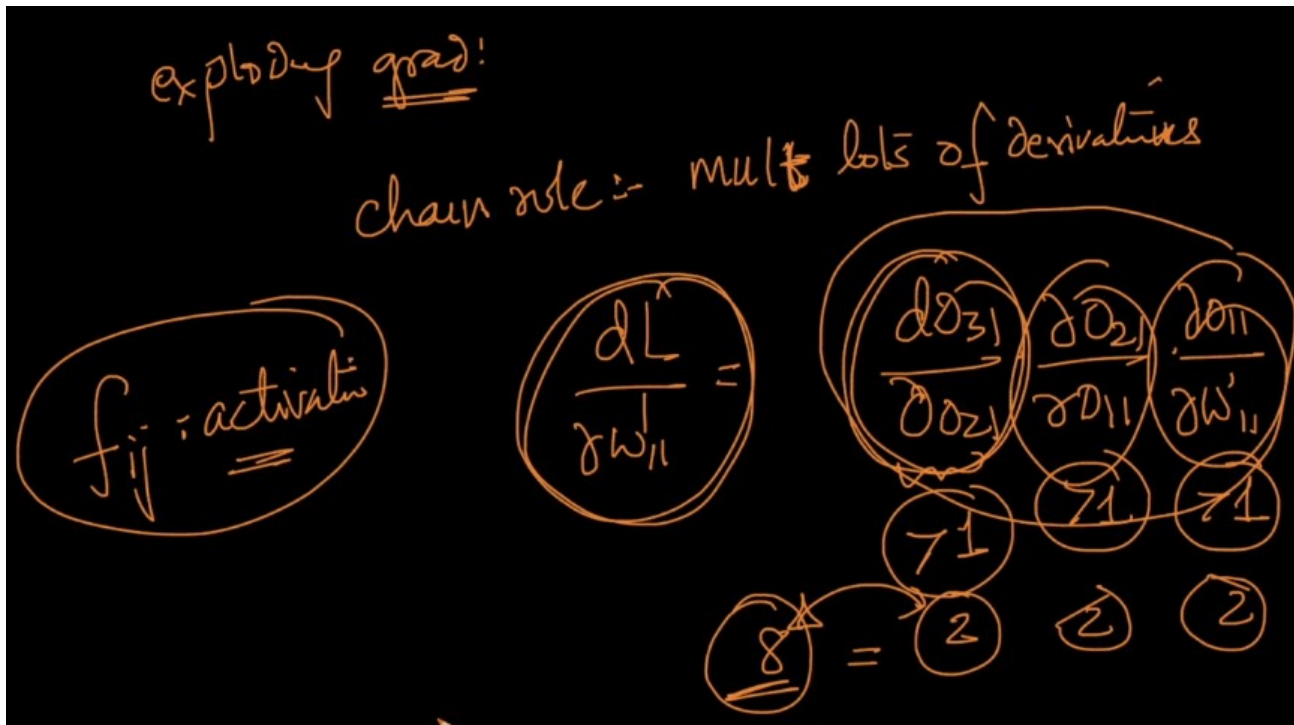 exploding grad:
chain rule :- mult lots of derivatives
f ij : activatio
dL / ∂w¹₁₁ = dO₃₁ / ∂O₂₁ ∂O₂₁ / ∂O₁₁ . ∂O₁₁ / ∂w¹₁₁
>1 >1 >1
8 = 2 2 2